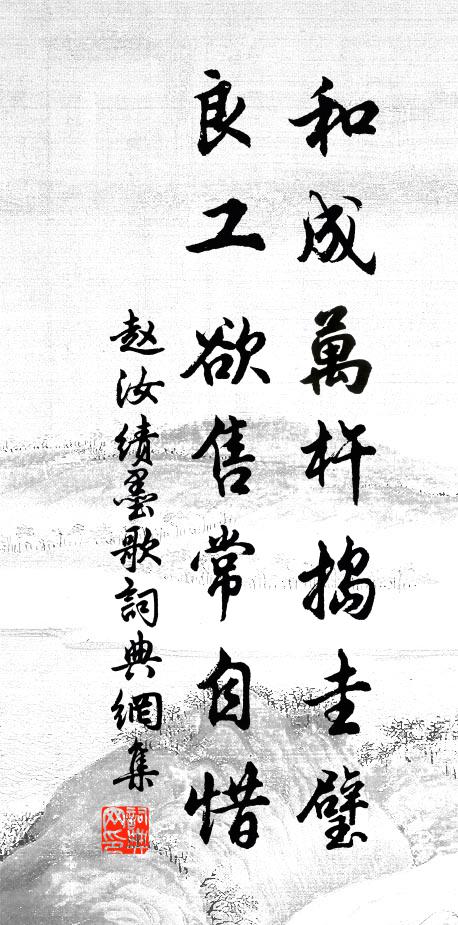 和成萬杵搗圭璧
良工欲售常自惜
赵汝績墨歌詞典網集